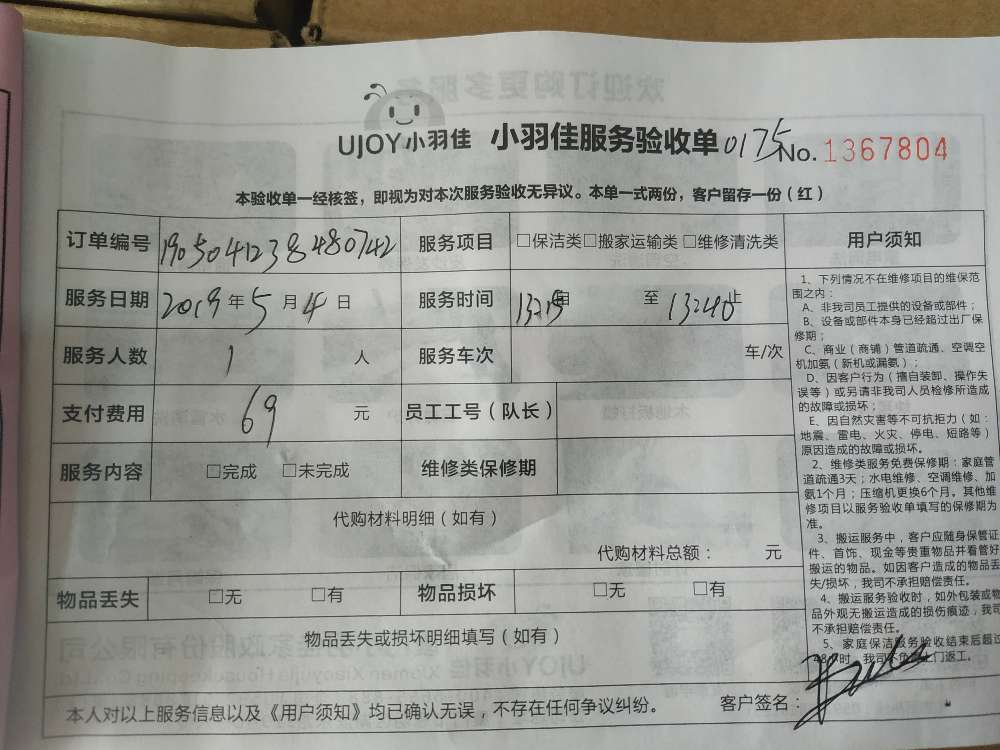 欢迎订购更多服务
UJOY小羽佳 小羽佳服务验收单 0175 No. 1367804
本验收单一经核签，即视为对本次服务验收无异议。本单一式两份，客户留存一份（红）
订单编号 1905041238480742 服务项目 □保洁类□搬家运输类 □维修清洗类
服务日期 2019 年 5 月 4 日 服务时间 至 13:40 止
服务人数 1 人 服务车次 车/次
支付费用 69 元 员工工号（队长）
服务内容 □完成 □未完成 维修类保修期
代购材料明细（如有）
代购材料总额： 元
物品丢失 □无 □有 物品损坏 □无 □有
物品丢失或损坏明细填写（如有）
本人对以上服务信息以及《用户须知》均已确认无误，不存在任何争议纠纷。 客户签名：
用户须知
1、下列情况不在维修项目的维保范
围之内：
A、非我司员工提供的设备或部件；
B、设备或部件本身已经超过出厂保
修期；
C、商业（商铺）管道疏通、空调空
机加氨（新机或漏氨）；
D、因客户行为（擅自装卸、操作失
误等）或另请非我司人员检修所造成
的故障或损坏；
E、因自然灾害等不可抗拒力（如：
地震、雷电、火灾、停电、短路等）
原因造成的故障或损坏。
2、维修类服务免费保修期：家庭管
道疏通3天；水电维修、空调维修、加
氨1个月；压缩机更换6个月。其他维
修项目以服务验收单填写的保修期为
准。
3、搬运服务中，客户应随身保管证
件、首饰、现金等贵重物品并看管好
搬运的物品。如因客户造成的物品丢
失/损坏，我司不承担赔偿责任。
4、搬运服务验收时，如外包装或物
品外观无搬运造成的损伤痕迹，我司
不承担赔偿责任。
5、家庭保洁服务验收结束后超过
48小时，我司不负责上门返工。
UJOY小羽佳
Xiamen Xiaoyujia Housekeeping Co.,Ltd.
家政股份有限公司